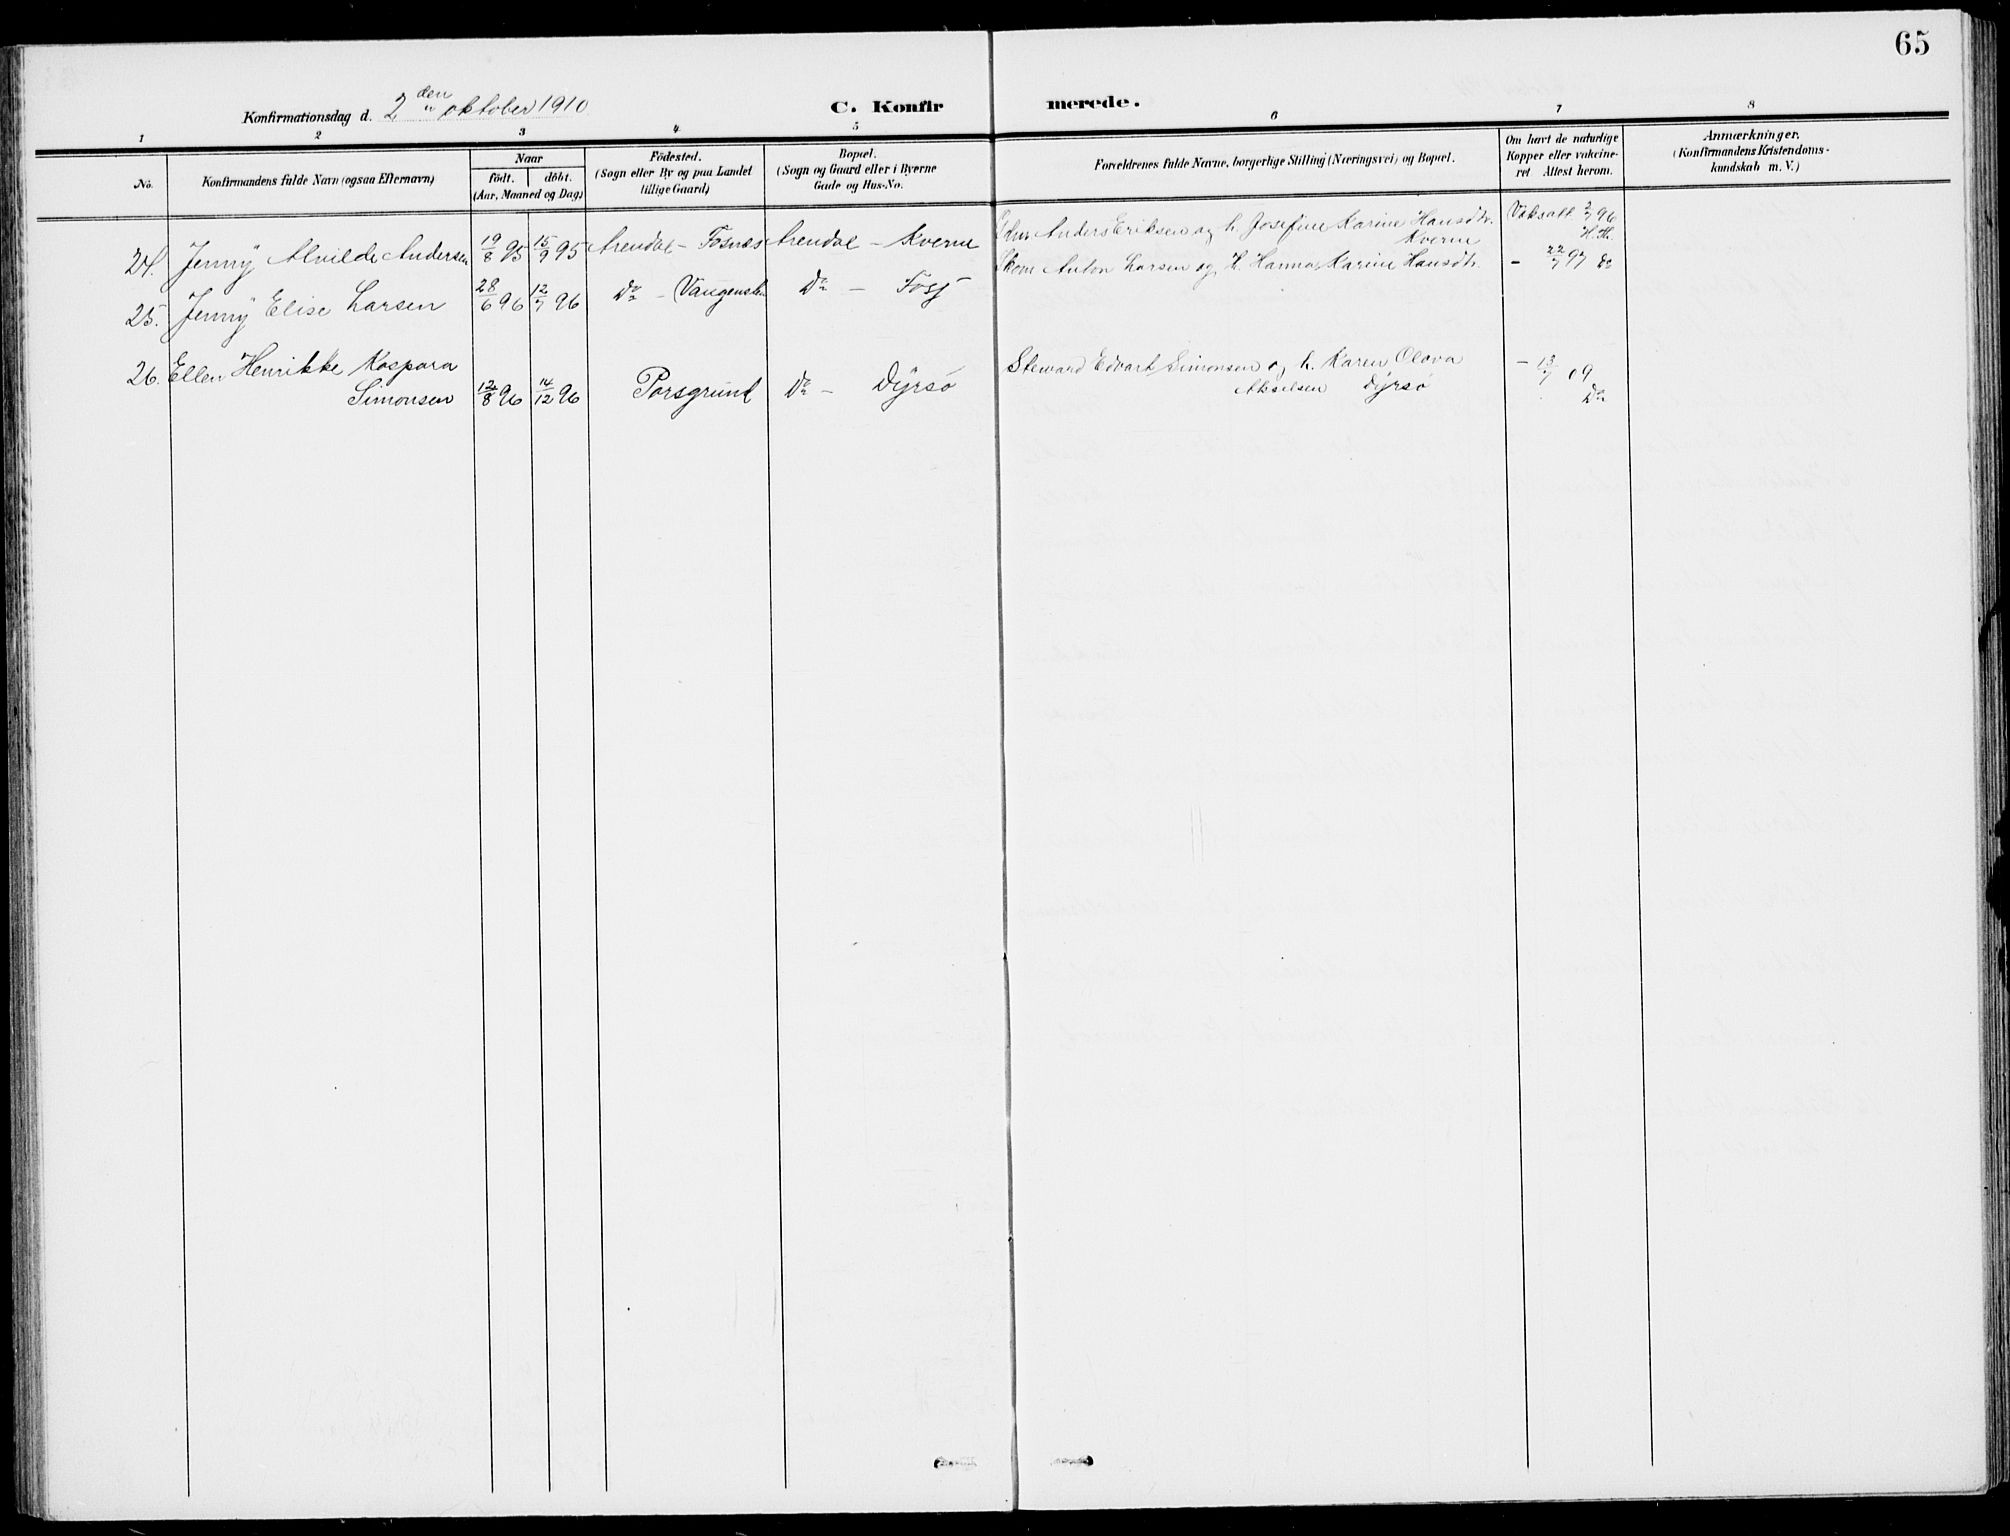 65
Konfirmationsdag d. 2 den oktober 1910 C. Konfirmerede.
1 2 3 4 5 6 7 8
No. Konfirmandens fulde Navn (ogsaa Efternavn) Naar födt. döbt. (Aar, Maaned og Dag) Födested. (Sogn eller By og paa Landet tillige Gaard) Bopæl. (Sogn og Gaard eller i Byerne Gade og Hus-No. Forældrenes fulde Navne, borgerlige Stilling (Næringsvei) og Bopæl. Om havt de naturlige Kopper eller vakcineret Attest herom. Anmærkninger. (Konfirmandens Kristendomskundskab m. V.)
24. Jenny Alvilde Andersen 19/8 95 15/9 95 Arendal - Fosnæs Arendal - Kverne Anders Eriksen og h. Josefine Karine Hansdtr. Kverne Vaksatt. 2/7 96 H. Th.
25. Jenny Elise Larsen 28/6 96 12/7 96 Do - Vangensten Do - Fosj Skom Anton Larsen og H. Hanna Karine Hansdtr. - 22/7 97 Do
26. Ellen Henrikke Kaspara Steward Edvart Simonsen og h. Karen Olava - 13/7 09
Simonsen 12/8 96 14/12 96 Porsgrund Do - Dyrsø Akselsen Dyrsø Do